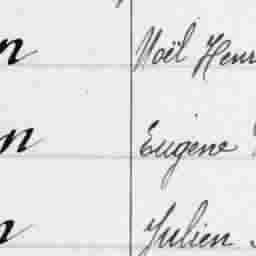 n Noël Henr
n Eugène
n Julien